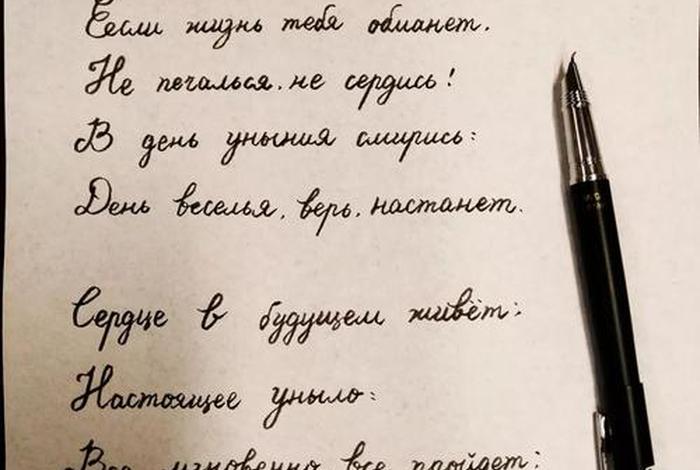 Если жизнь тебя обманет.
Не печалься, не сердись!
В день уныния смирись:
День веселья, верь, настанет.
Сердце в будущем живёт;
Настоящее уныло:
Все мгновенно, все пройдет;